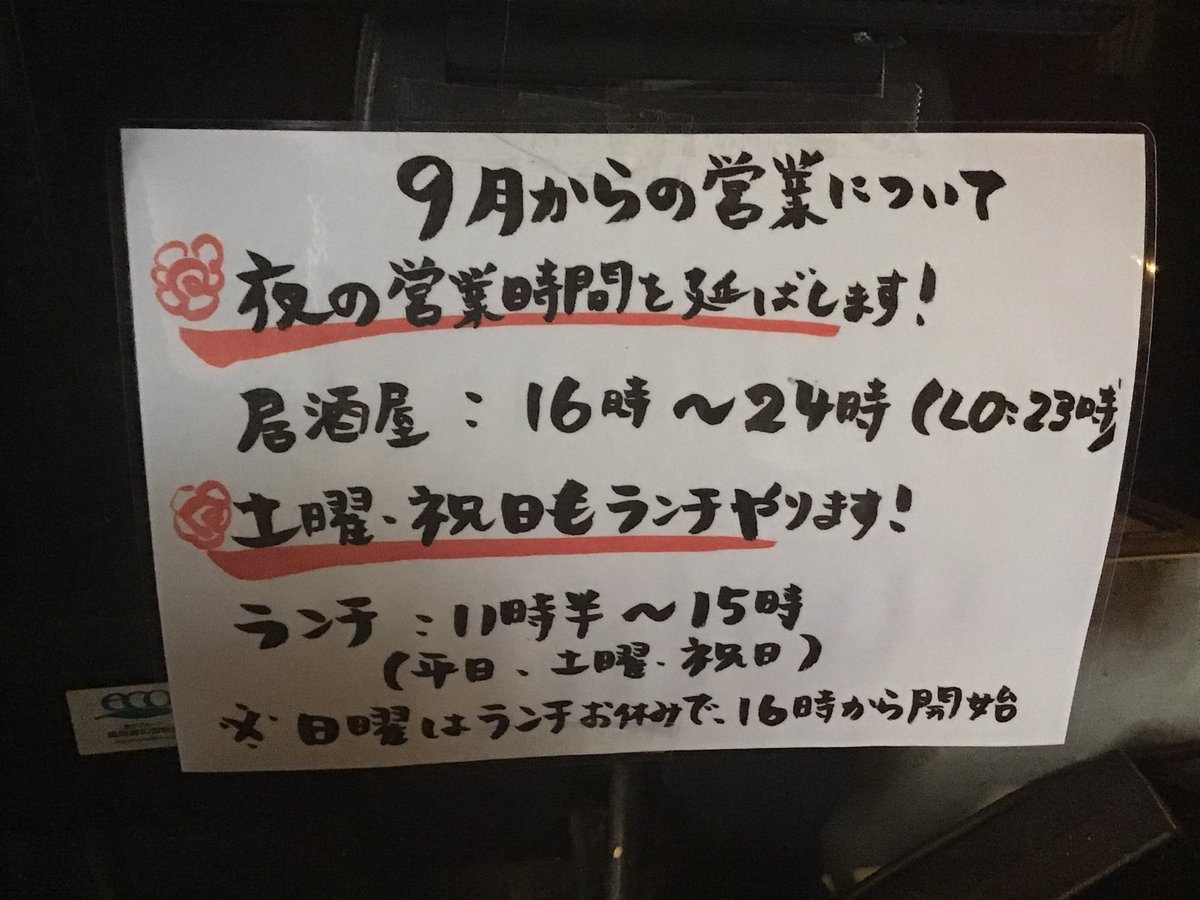 9月からの営業について
夜の営業時間を延ばします!
居酒屋:16時~24時(LO:23時)
土曜、祝日もランチやります!
ランチ:11時半~15時
(平日、土曜、祝日)
※日曜はランチお休みで、16時から開始
eco